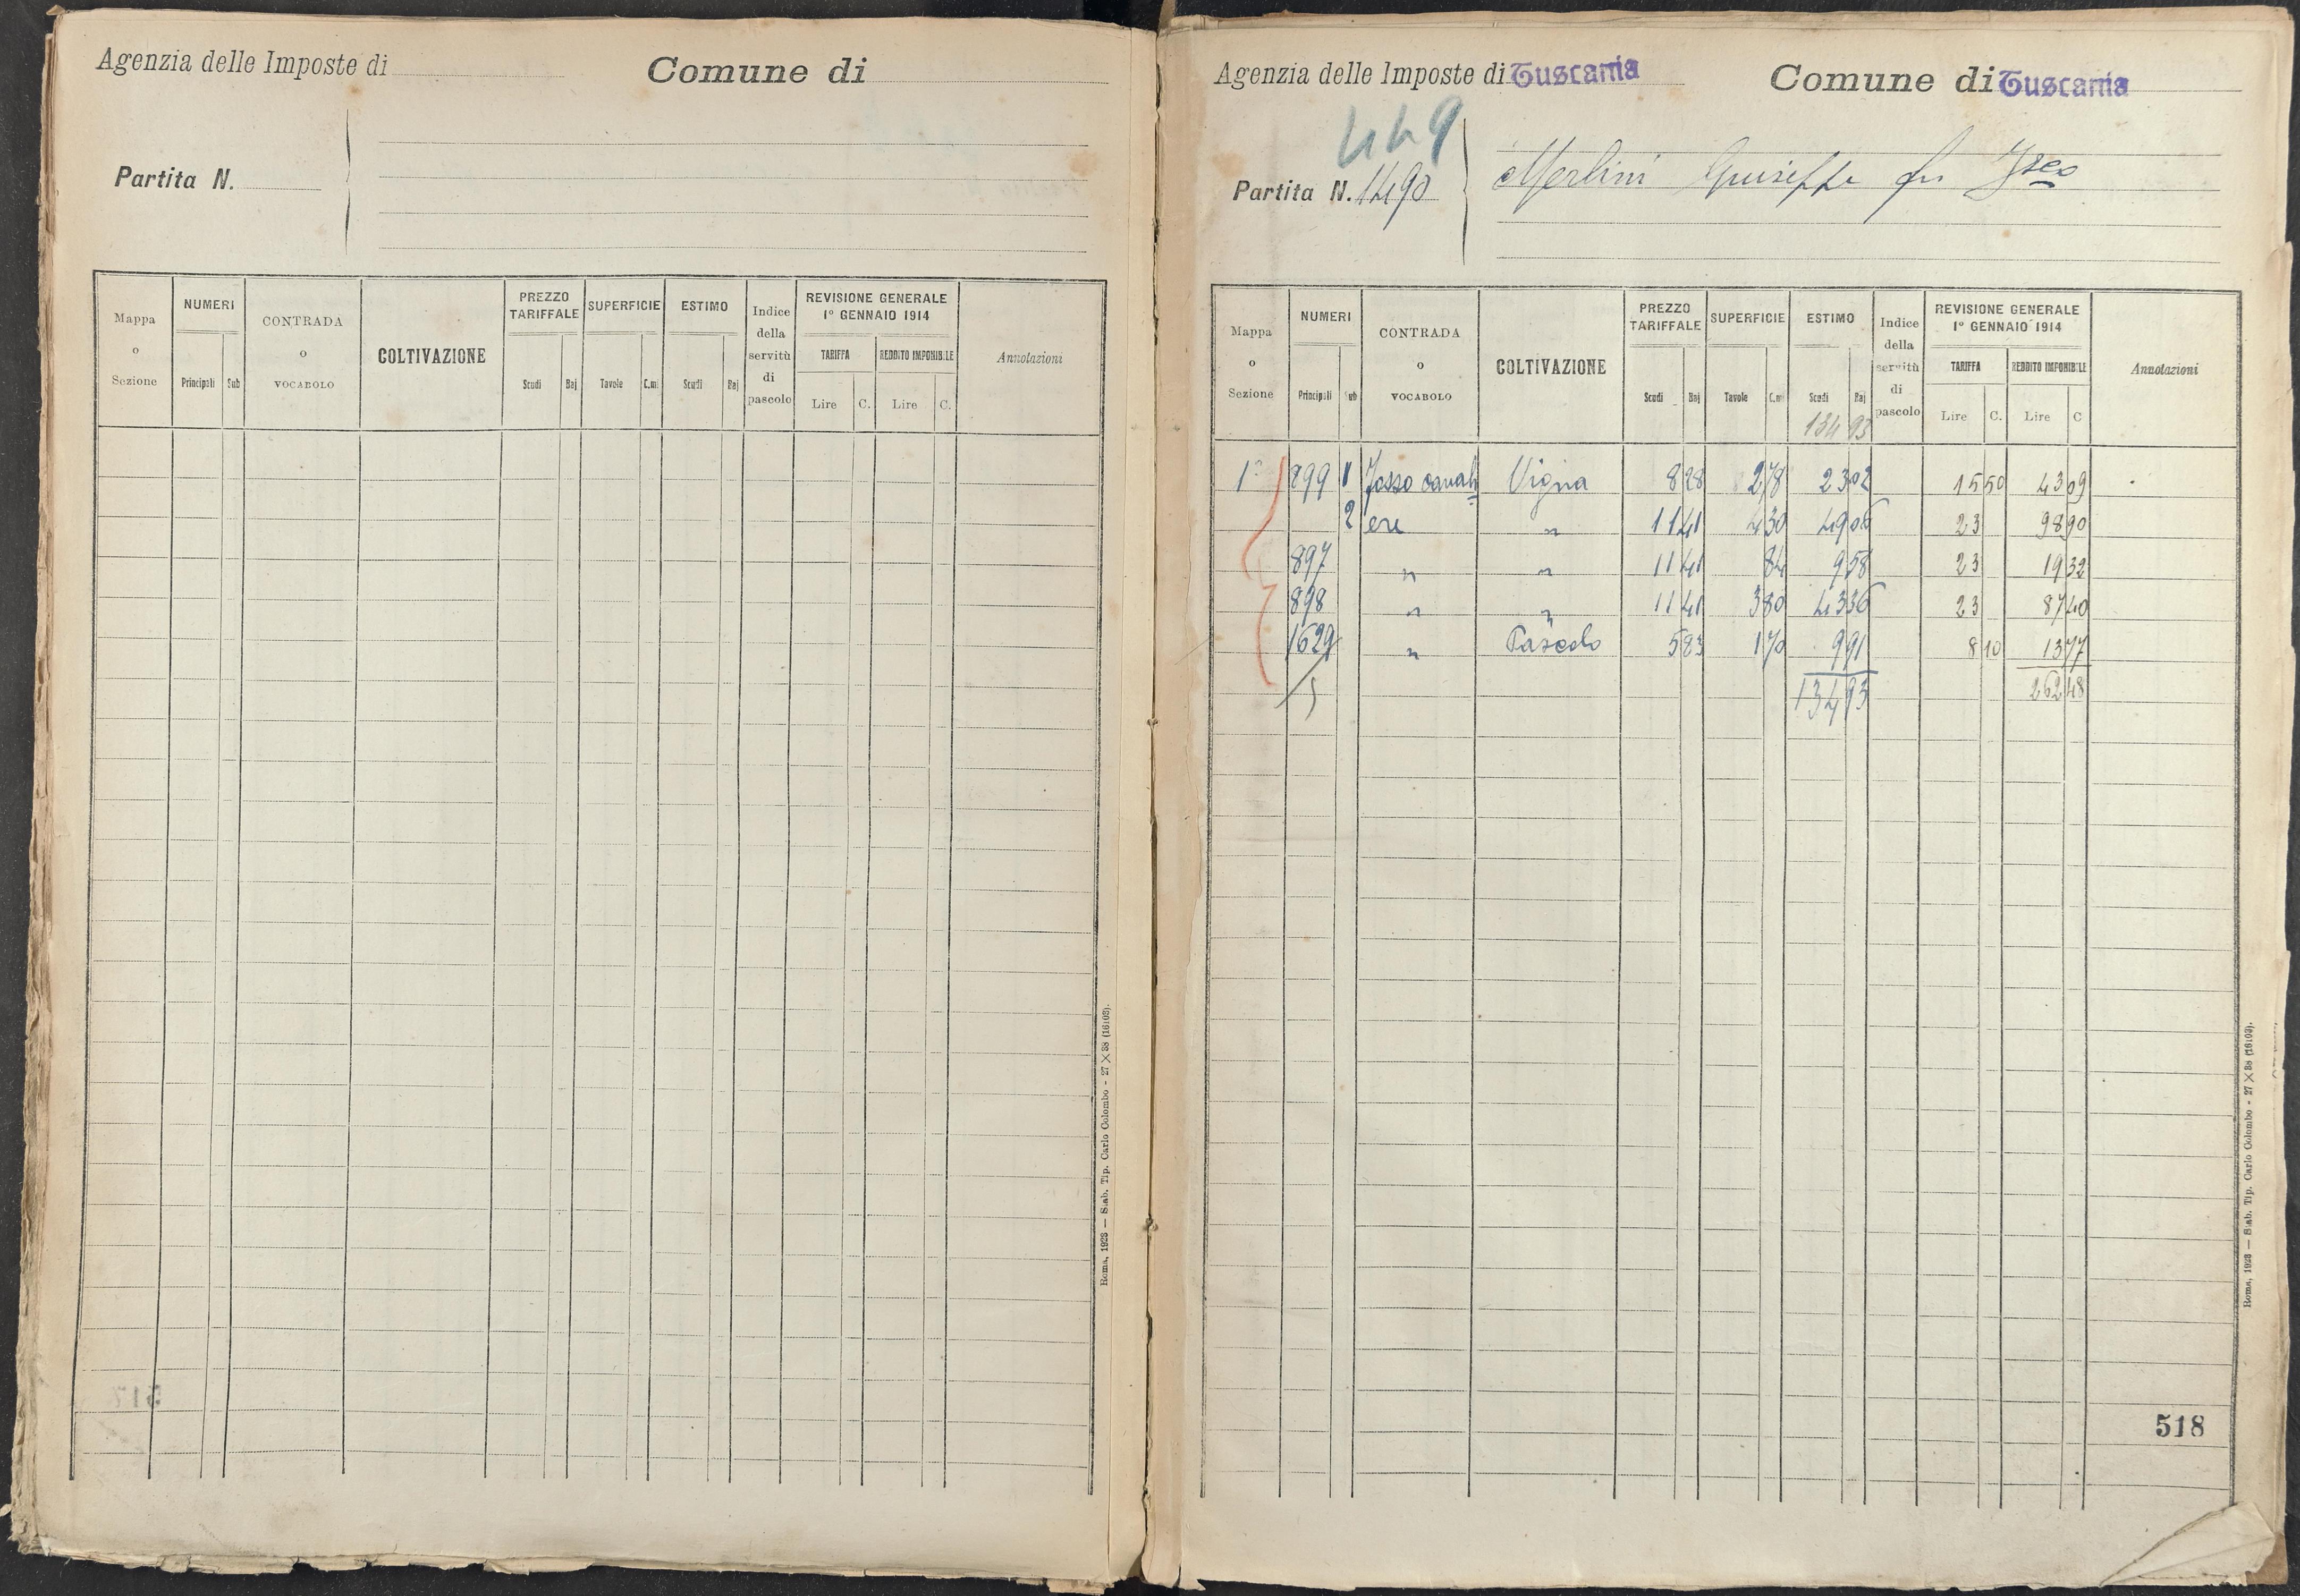 Agenzia delle Imposte di
Comune di
Partita N.
Mappa o Sezione
NUMERI
Principali Sub
CONTRADA O VOCABOLO
COLTIVAZIONE
PREZZO TARIFFALE
Scudi Baj
SUPERFICIE
Tavole C.mi
ESTIMO
Scudi Baj
Indice della servitù di pascolo
REVISIONE GENERALE
1° GENNAIO 1914
TARIFFA REDDITO IMPONIBILE
Lire C. Lire C.
Annotazioni
Roma, 1923 — Stab. Tip. Carlo Colombo - 27 X 38 (16103).
Agenzia delle Imposte di Tuscania
Comune di Tuscania
449
Partita N. 1490
Merlini Giuseppe fu
Mappa o Sezione
NUMERI
Principali Sub
CONTRADA O VOCABOLO
COLTIVAZIONE
PREZZO TARIFFALE
Scudi Baj
SUPERFICIE
Tavole C.mi
ESTIMO
Scudi Baj
134 93
Indice della servitù di pascolo
REVISIONE GENERALE
1° GENNAIO 1914
TARIFFA REDDITO IMPONIBILE
Lire C. Lire C
Annotazioni
1ª 899 1 Fosso Vigna 8 28 2 78 23 02 15 50 43 09
2 ere " 11 41 4 30 49 06 23 98 90
897 " " 11 41 84 9 58 23 19 32
898 " " 11 41 3 80 43 36 23 87 40
1629 " Pascolo 5 83 1 70 9 91 8 10 13 77
5 134 93 262 48
518
Roma, 1923 — Stab. Tip. Carlo Colombo - 27 X 38 (16103).